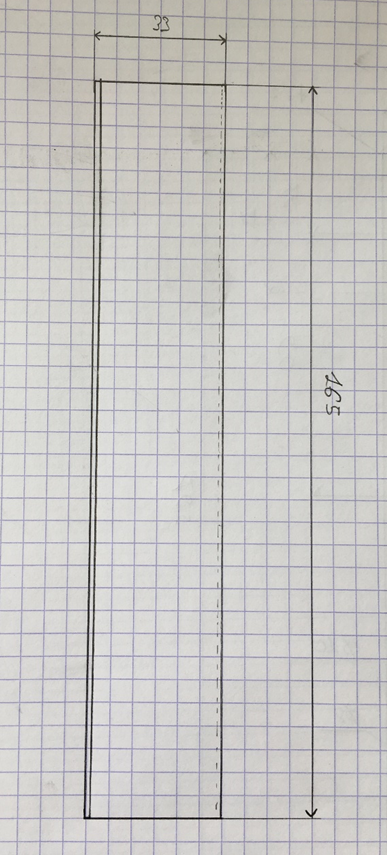 33
165